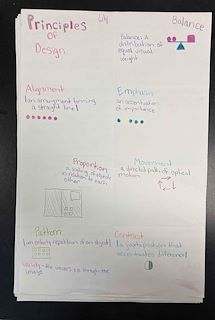 Principles
Of
Design
Balance
Balance: A
distribution of
equal visual
weight
Alignment
|an arrangment forming
a straight line|
Emphasis
|an accentuation
of importance
Proportion
a scaling of
in relation to each
other
Movement
a directed path of optical
motion
Pattern
|an orderly repetition of an object|
Contrast
|a juxtaposition that
accentuates difference|
Variety - the
image